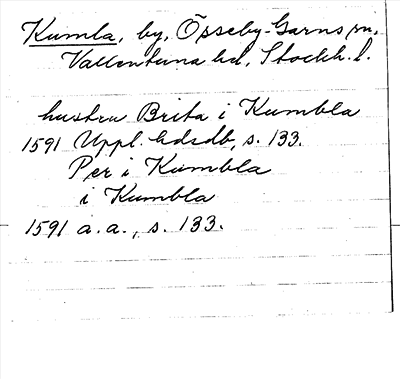 Kumla, by, Össeby-Garns sn,
Vallentuna hd, Stockh. l.
hustru Brita i Kumbla
1591 Uppl. hdsdb, s. 133.
Per i Kumbla
i Kumbla
1591 a. a., s. 133.